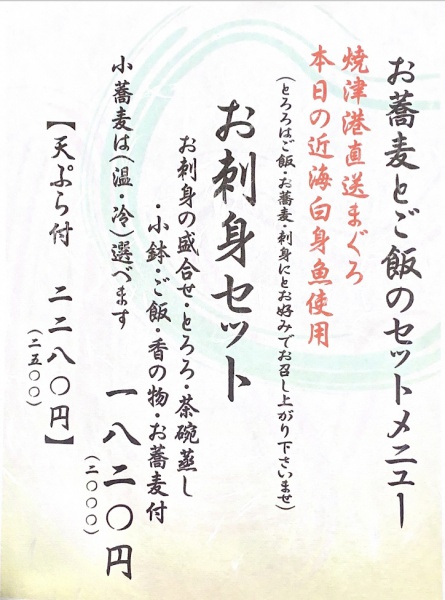 お蕎麦とご飯のセットメニュー
焼津港直送まぐろ
本日の近海白身魚使用
(とろろはご飯・お蕎麦・刺身にとお好みでお召し上がり下さいませ)
お刺身セット
お刺身の盛合せ・とろろ・茶碗蒸し
・小鉢・ご飯・香の物・お蕎麦付
小蕎麦は(温・冷)選べます
一八二〇円
(二〇〇〇)
【天ぷら付 二二八〇円】
(二五〇〇)